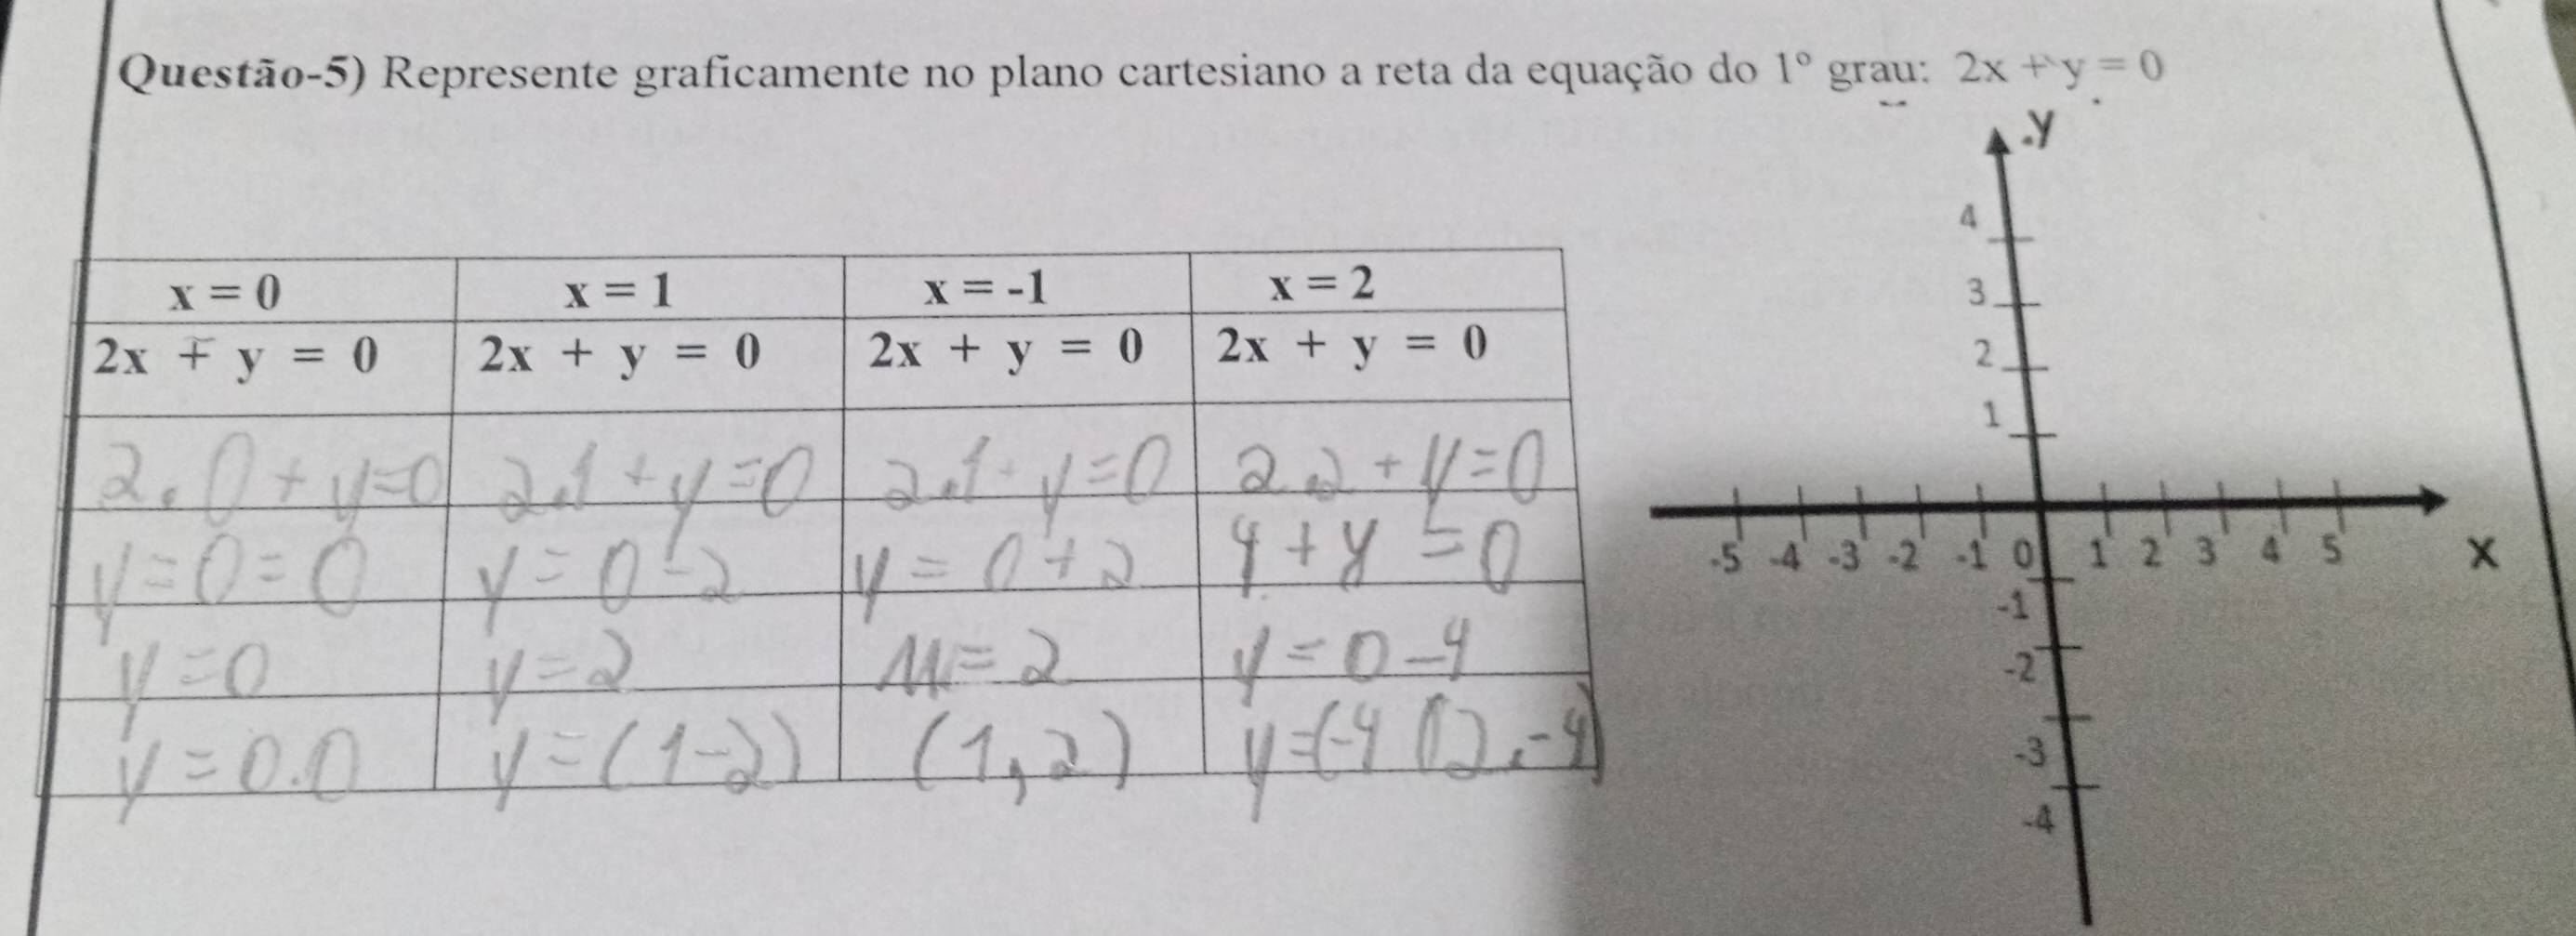 Questão-5) Represente graficamente no plano cartesiano a reta da equação do 1º grau: 2x + y = 0
x = 0 x = 1 x = -1 x = 2
2x + y = 0 2x + y = 0 2x + y = 0 2x + y = 0
2.0 + y=0 2.1 + y=0 2.1 - y=0 2.2 + y=0
y=0=0 y=0-2 y=0+2 4+y=0
y=0 y=2 =2 y=0-4
y=0.0 y=(1-2) (1,2) y=(-4 (2,-4)
.y
4
3
2
1
-5 -4 -3 -2 -1 0 1 2 3 4 5 x
-1
-2
-3
-4